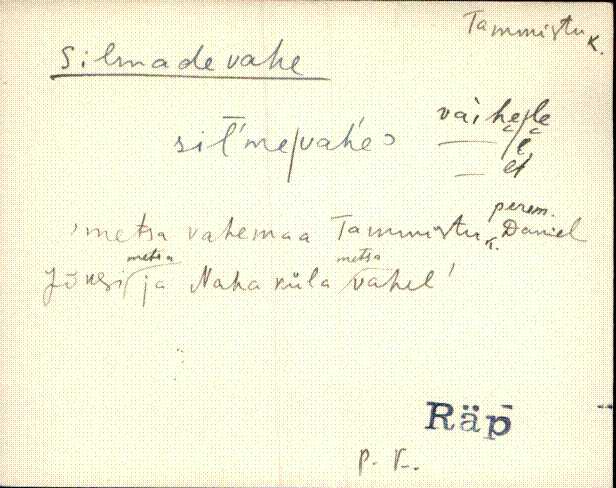 Tammistu K.
Silmade vahe
sil'me/vahe
väihe/le
metsa vahemaa Tammistu k. perem. Daniel
Jõksi metsa ja Naha küla metsa vahel'
Räp